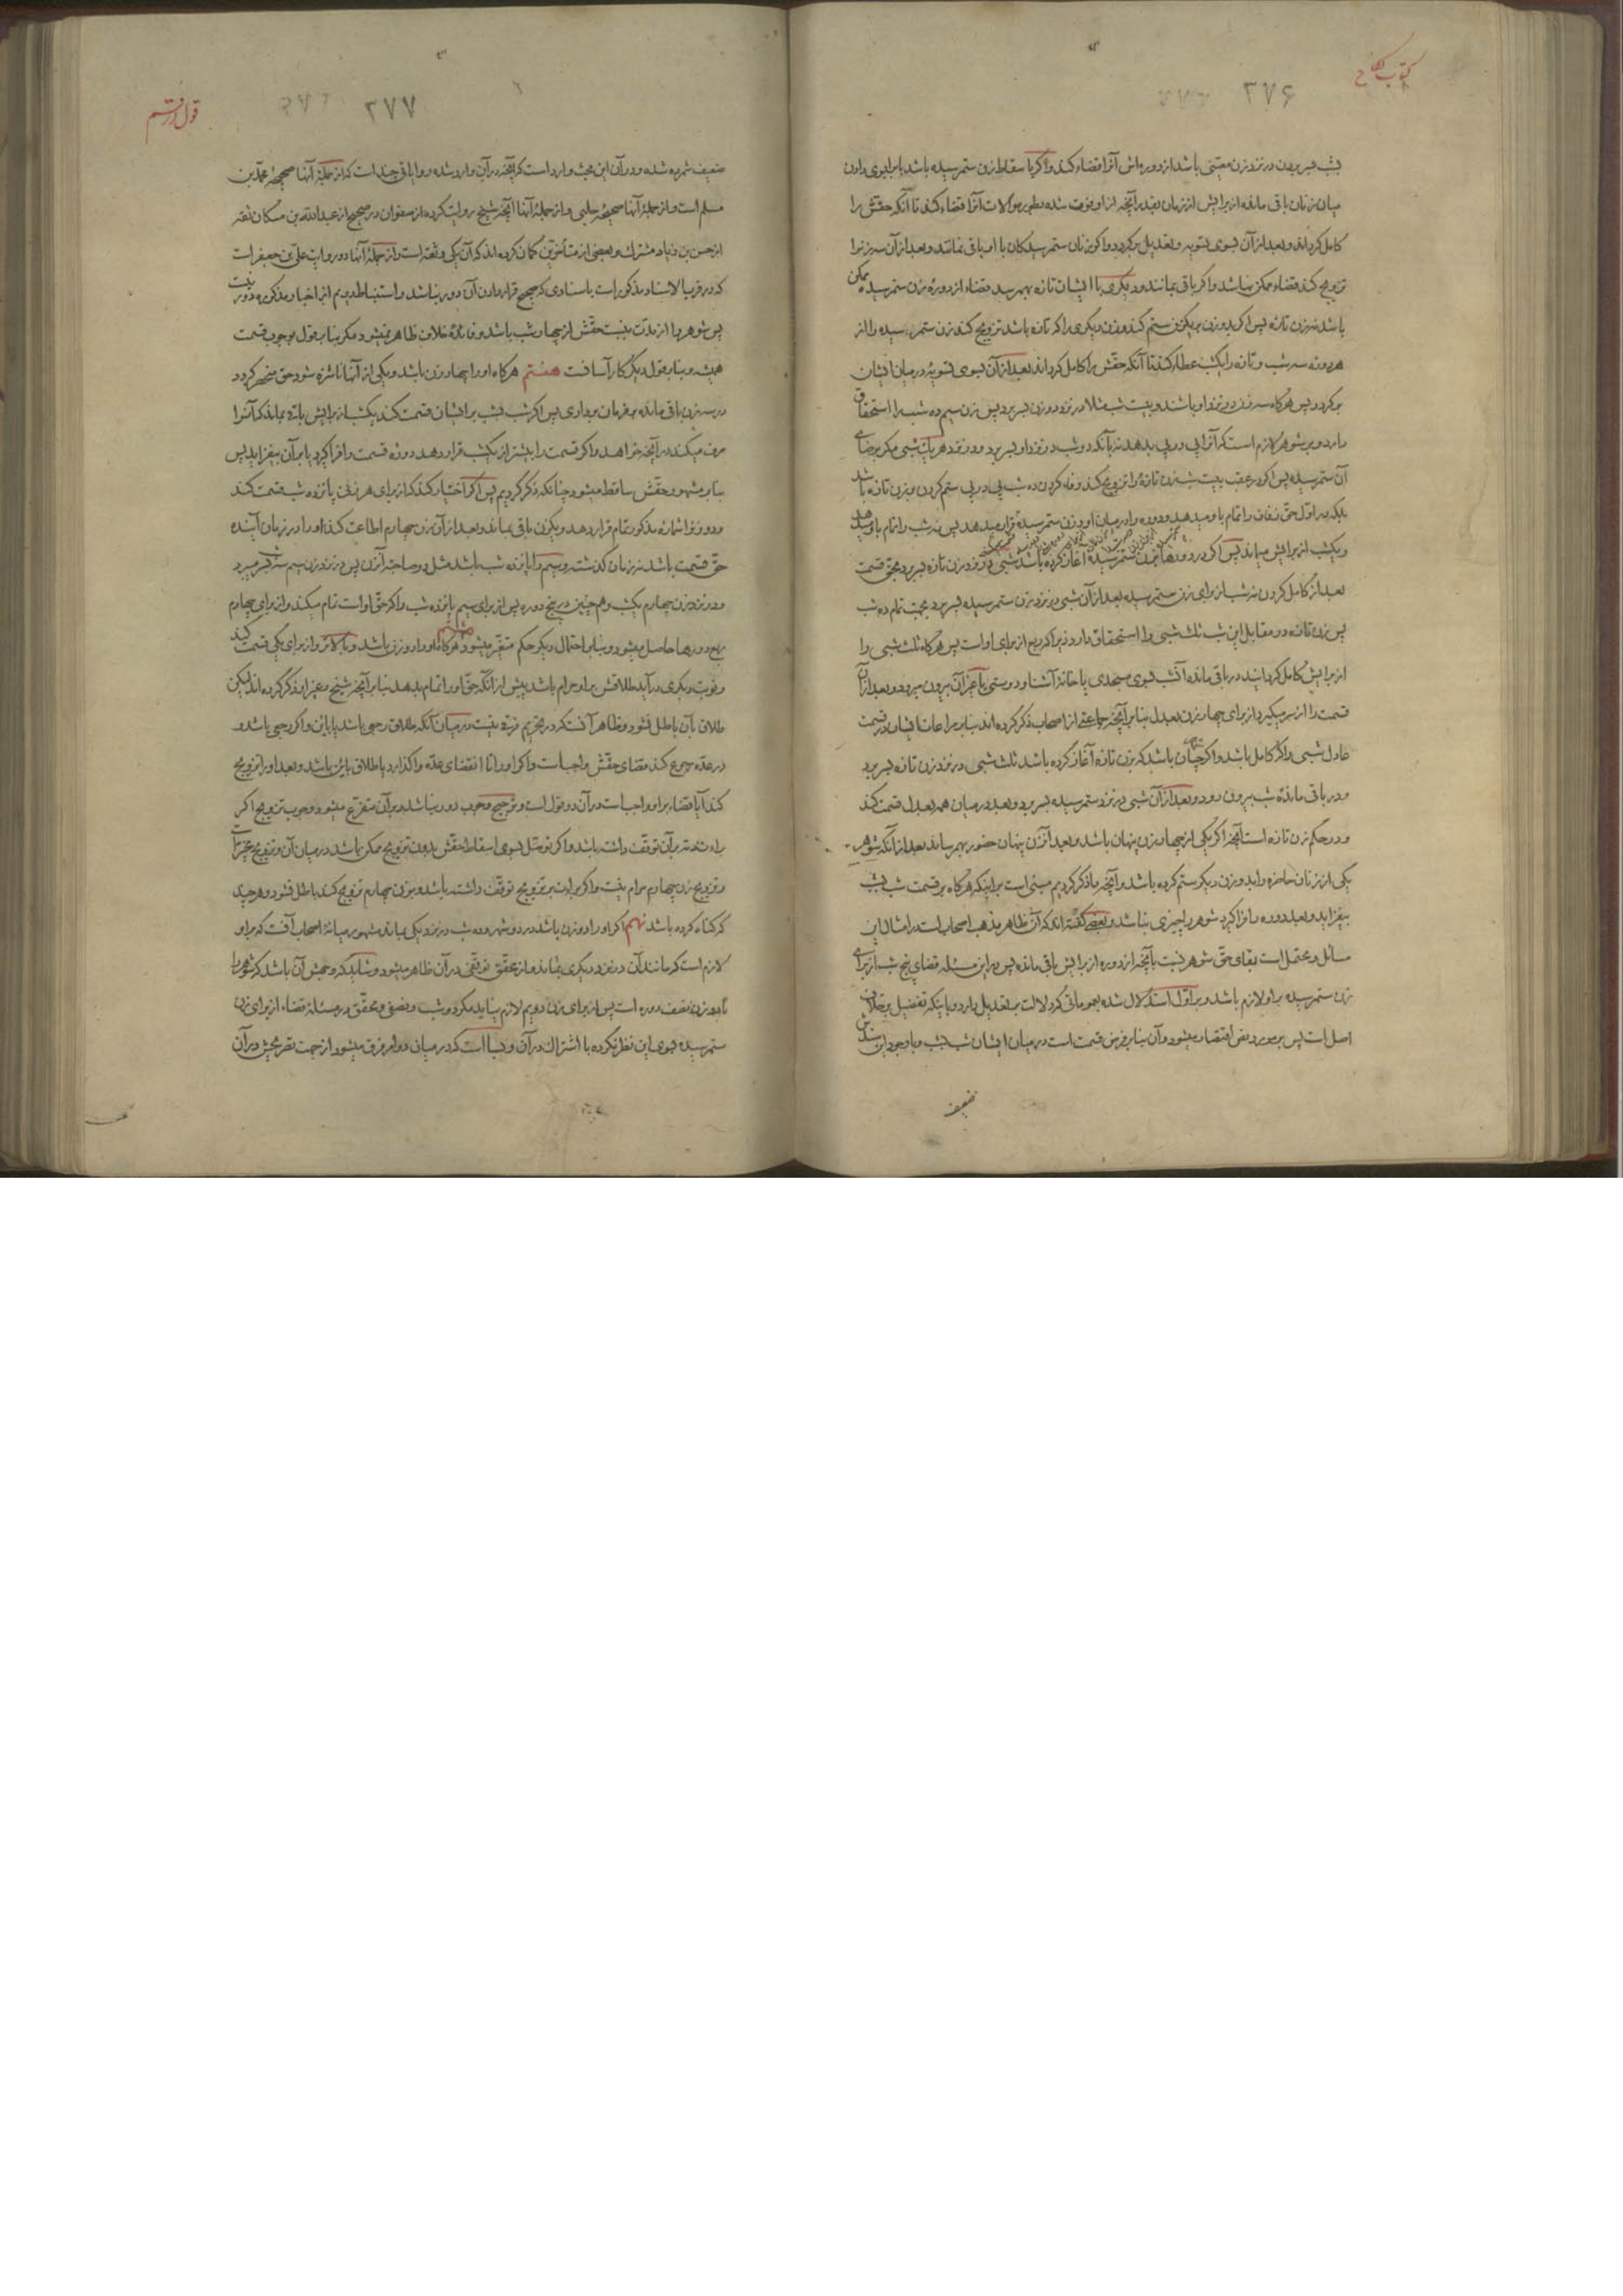 کتاب نکاح
۳۷۶
بشب بسر بردن در نزد زن معینی باشد از دوره‌اش آنرا قضاء کند و اگر با سقاط زن ستم رسیده باشد یا برابری دادن
میان زنان باقی مانده از برایش از زمان بقدر آنچه از او فوت شده بطور موالات آنرا قضاء کند تا آنکه حقش را
کامل گرداند و بعد از آن بسوی تسویه و تعدیل برگردد و اگر زنان ستم رسیدگان با او باقی نمانند و بعد از آن سه زنرا
تزویج کند قضاء ممکن نباشد و اگر باقی بمانند و دیگری با ایشان تازه بهم رسد قضاء از دورهٔ زن ستم رسیده ممکن
باشد نه زن تازه پس اگر بدو زن بر یکزن ستم کند و زن دیگری را که تازه باشد تزویج کند زن ستم رسیده را از
هر دوره سه شب و تازه را یکشب عطاء کند تا آنکه حقش را کامل گرداند بعد از آن بسوی تسویه در میان ایشان
برگردد پس هرگاه سه زن در نزد او باشند و بیست شب مثلا در نزد دو زن بسر برد پس زن سیم ده شب را استحقاق
دارد و بر شوهر لازم است که آنرا پی در پی بدهد نه بآنکه دو شب در نزد او بسر برد و در نزد هر یک شبی مگر برضای
آن ستم رسیده پس اگر در عقب بیست شب زن تازهٔ را تزویج کند و فاء کردن ده شب پی در پی ستم کردن بزن تازه باشد
بلکه در اول حق زفاف را تمام باو میدهد و دوره را در میان او و زن ستم رسیده قرار میدهد پس نه شب را تمام باو میدهد
و یکشب از برایش میماند پس اگر در دورها بزن ستم رسیده آغاز کرده باشد شبی در نزد زن تازه بسر برد بحق قسمت
بعد از کامل کردن نه شب از برای زن ستم رسیده بعد از آن شبی در نزد زن ستم رسیده بسر برد بجهت تمام ده شب
پس زن تازه در مقابل این شب ثلث شبی را استحقاق دارد زیرا که ربع از برای او است پس هرگاه ثلث شبی را
از برایش کامل گردانید در باقی مانده آنشب بسوی مسجدی یا خانهٔ آشنا و دوستی یا غیر آن بیرون میرود و بعد از آن
قسمت را از سر میگیرد از برای چهار زن بعدل بنا بر آنچه جماعتی از اصحاب ذکر کرده‌اند بنا بر مراعات ایشان در قسمت
عادل شبی و اگر کامل باشد و اگر چنان باشد که بزن تازه آغاز کرده باشد ثلث شبی در نزد زن تازه بسر برد
و در باقی ماندهٔ شب بیرون رود و بعد از آن شبی در نزد ستم رسیده بسر برد و بعد در میان همه بعدل قسمت کند
و در حکم زن تازه است آنچه اگر یکی از چهار زن پنهان باشد و بعد آنزن پنهان حضور بهم رساند بعد از آنکه شوهر بر
یکی از زنان حاضره را بدو زن دیگر ستم کرده باشد و آنچه ما ذکر کردیم مبنی است بر اینکه هرگاه بر قسمت شب بشب
بیفزاید و بعد دوره را فرا گیرد شوهر را چیزی نباشد و بعضی گفته‌اند که آن ظاهر مذهب اصحاب است در امثال این
مسائل و محتمل است بقای حق شوهر نسبت بآنچه از دوره از برایش باقی مانده پس در این مسئله قضای پنج شب از برای
زن ستم رسیده بر او لازم باشد و بر اول استدلال شده بعموماتی که دلالت بر تعدیل دارد و باینکه تفضیل بر خلاف
اصل است پس بر مورد نص اقتصار میشود و آن بنا بر فرض قسمت است در میان ایشان شب بشب و با وجود این سندش
ضعیف
قول در قسم
۳۷۷
ضعیف شمرده شده و در آن این بحث وارد است که آنچه در آن وارد شده روایاتی چند است که از جملهٔ آنها صحیحهٔ محمد بن
مسلم است و از جملهٔ آنها صحیحهٔ حلبی و از جملهٔ آنها آنچه شیخ روایت کرده از صفوان در صحیح از عبدالله بن مسکان ثقه
از حسن بن زیاد مشترک و بعضی از متأخرین گمان کرده‌اند که آن یکی و ثقه است و از جملهٔ آنها دو روایت علی بن جعفر است
که در قرب الاسناد مذکور است باسنادی که صحیح قرار دادن آن دور نباشد و استنباط دویم از اخبار مذکوره دور نیست
پس شوهر را از مدت بیست حقش از چهار شب باشد و فائدهٔ خلاف ظاهر نمیشود مگر بنا بر قول بوجوب قسمت
همیشه و بنا بر قول دیگر کار آسانست هفتم هرگاه او را چهار زن باشد و یکی از آنها ناشزه شود حق منحصر گردد
در سه زن باقی مانده بفرمان برداری پس اگر شب بشب بر ایشان قسمت کند یکشب از برایش باقی بماند که آنرا
صرف میکند در آنچه خواهد و اگر قسمت را بیشتر از یکشب قرار دهد و دوره قسمت را فرا گیرد یا بر آن بیفزاید پس
بنا بر مشهور حقش ساقط میشود چنانکه ذکر کردیم پس اگر اختیار کند که از برای هر زنی پانزده شب قسمت کند
و دو زنرا شماره مذکور تمام قرار دهد و یکزن باقی بماند و بعد از آن زن چهارم اطاعت کند او را در زمان آینده
حق قسمت باشد نه زمان گذشته و سیم را پانزده شب باشد مثل دو صاحبهٔ آنزن پس در نزد زن سیم سه شب بسر میبرد
و در نزد زن چهارم یکشب و هم چنین در پنج دوره پس از برای سیم پانزده شب و اگر حق او است تمام میکند و از برای چهارم
ربع دورها حاصل میشود و بنا بر احتمال دیگر حکم متغیر میشود هشتم هرگاه او را دو زن باشد و یا بالاتر و از برای یکی قسمت کند
و نوبت دیگری در آید طلاقش بر او حرام باشد پیش از آنکه حق او را تمام بدهد بنا بر آنچه شیخ و غیر او ذکر کرده‌اند لیکن
طلاق بآن باطل نشود و ظاهر آنست که در تحریم فرق نیست در میان آنکه طلاق رجعی باشد یا باین و اگر رجعی باشد و
در عده رجوع کند قضای حقش واجب است و اگر او را تا انقضای عده واگذارد یا طلاق باین باشد و بعد او را تزویج
کند آیا قضاء بر او واجب است در آن دو قول است و ترجیح وجوب دور نباشد و بر آن متفرع میشود وجوب تزویج اگر
براءت ذمه بر آن توقف داشته باشد و اگر توسل بسوی اسقاط حقش بدون تزویج ممکن باشد در میان آن و تزویج مخیر است
و تزویج زن چهارم حرام نیست و اگر براءت بر تزویج توقف داشته باشد و بزن چهارم تزویج کند باطل نشود و هر چند
که گناه کرده باشد نهم اگر او را دو زن باشد در دو شهر و ده شب در نزد یکی بماند مشهور میانهٔ اصحاب آنست که بر او
لازم است که مانند آن در نزد دیگری بماند و از محقق توقفی در آن ظاهر میشود و شاید که وجهش آن باشد که شوهر را
با دو زن نصف دوره است پس از برای زن دویم لازم نیاید مگر دو شب و نصفی و محقق در مسئلهٔ قضاء از برای زن
ستم رسیده بسوی این نظر نکرده با اشتراک در آن و بسا است که در میان دو امر فرق میشود از جهت تصریحش در آن